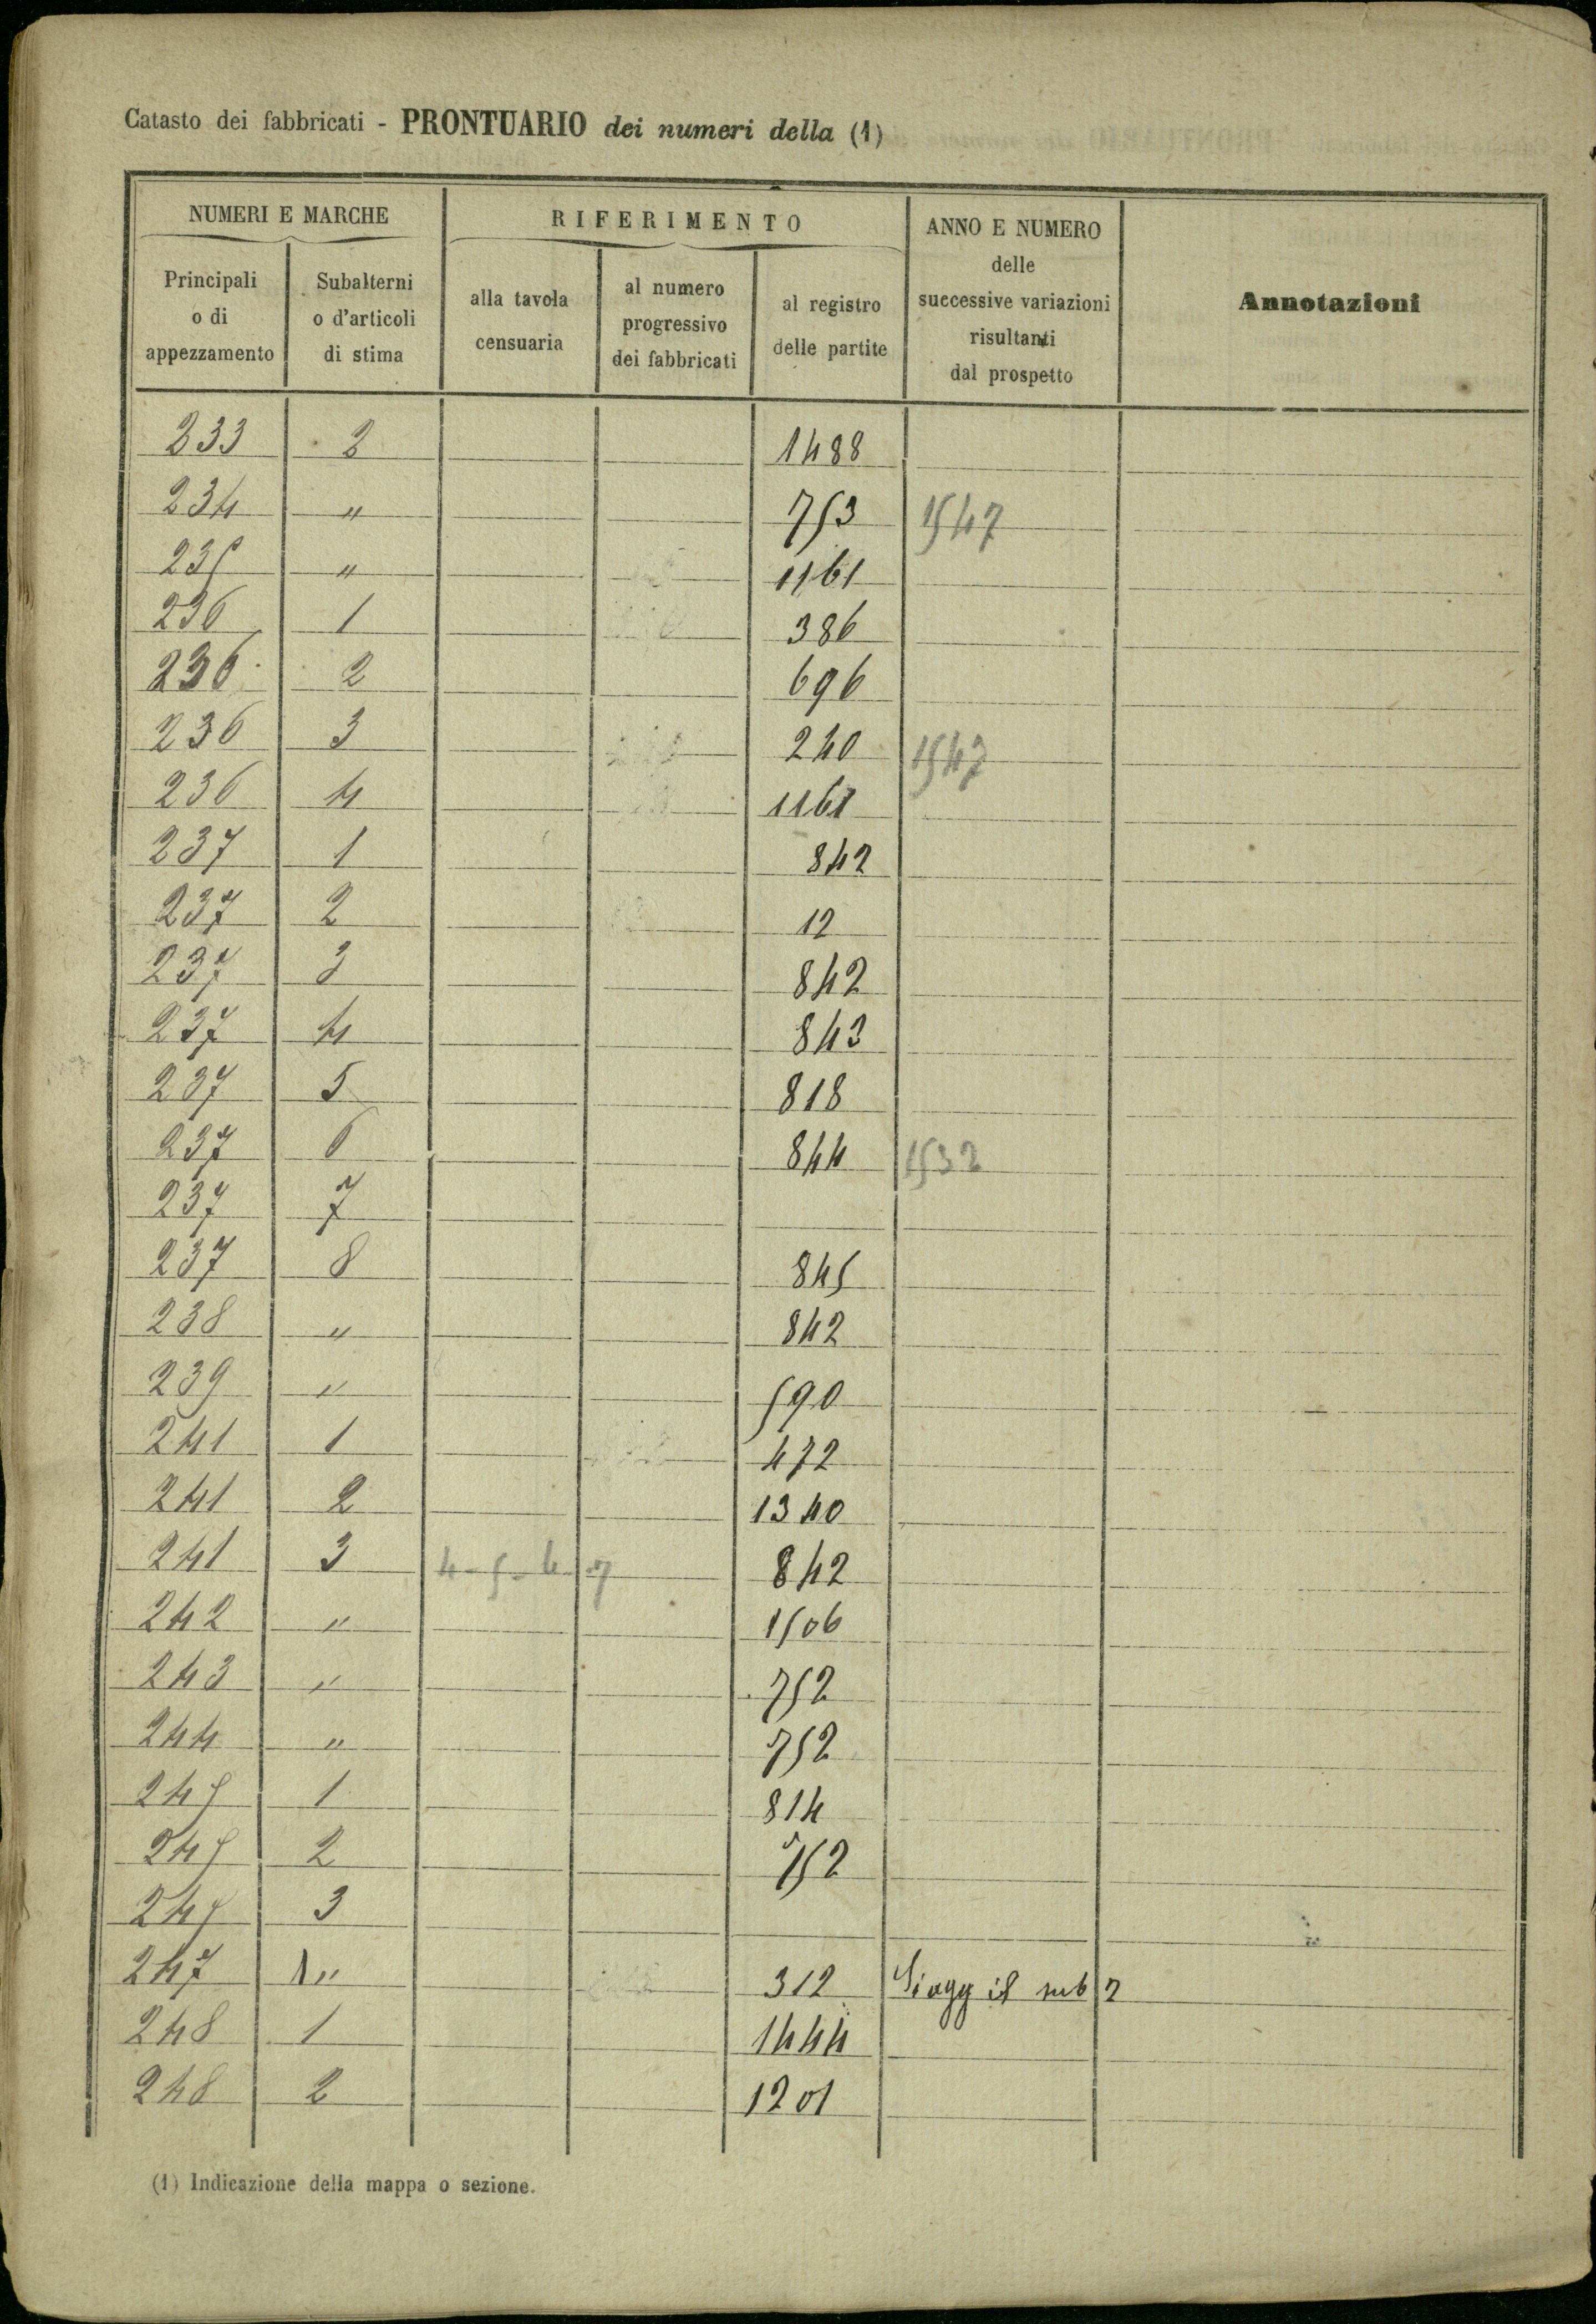 Catasto dei fabbricati - PRONTUARIO dei numeri della (1)
NUMERI E MARCHE
RIFERIMENTO
ANNO E NUMERO
delle
successive variazioni
risultanti
dal prospetto
Annotazioni
Principali
o di
appezzamento
Subalterni
o d'articoli
di stima
alla tavola
censuaria
al numero
progressivo
dei fabbricati
al registro
delle partite
233 2 1488
234 " 753 1547
235 " 1161
236 1 386
236 2 696
236 3 240 1547
236 4 1161
237 1 842
237 2 12
237 3 842
237 4 843
237 5 818
237 6 844 1532
237 7
237 8 845
238 " 842
239 " 590
241 1 472
241 2 1340
241 3 4-5-6 7 842
242 " 1506
243 " 752
244 " 752
245 1 814
245 2 752
245 3
247 1" 312 Si agg il sub 2
248 1 1444
248 2 1201
(1) Indicazione della mappa o sezione.